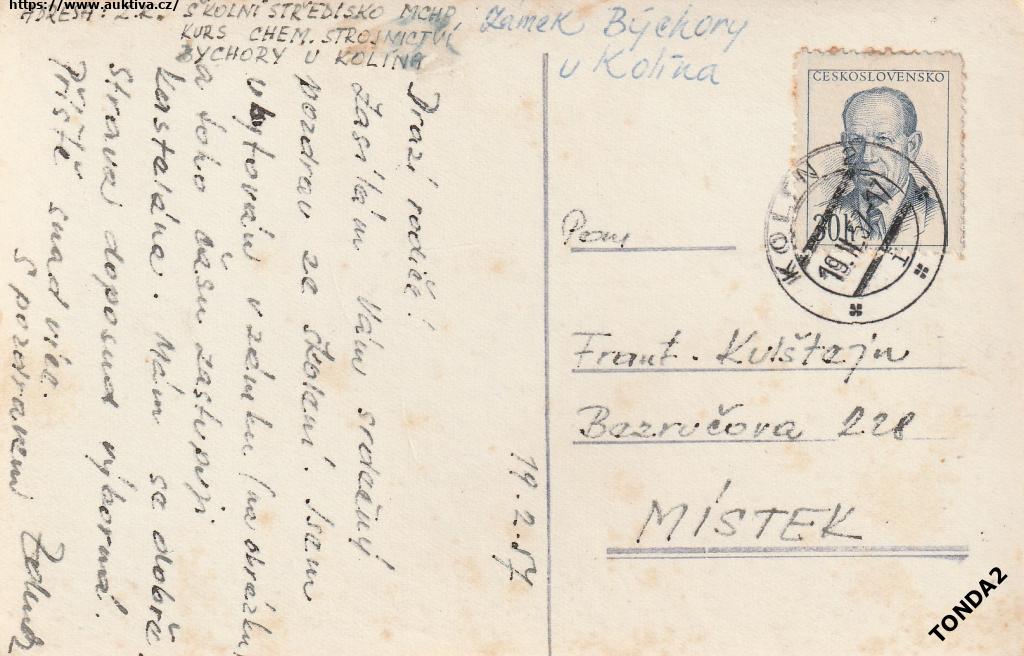 https://www.auktiva.cz/
ADRESA: Z.K. ŠKOLNÍ STŘEDISKO MCHP
KURS CHEM. STROJNICTVÍ
BÝCHORY U KOLÍNA
Zámek Býchory
u Kolína
Drazí rodiče!
Zasílám Vám srdečný
pozdrav ze školení. Jsem
ubytován v zámku (na obrázku)
a toho času zastupuji
kastelána. Mám se dobře.
Strava doposud výborná.
Příště snad více.
S pozdravem
19.2.54
ČESKOSLOVENSKO
30h
KOLÍN
19.II.54-17
Pan
Frant. Kulštejn
Bezručova 228
MÍSTEK
TONDA2